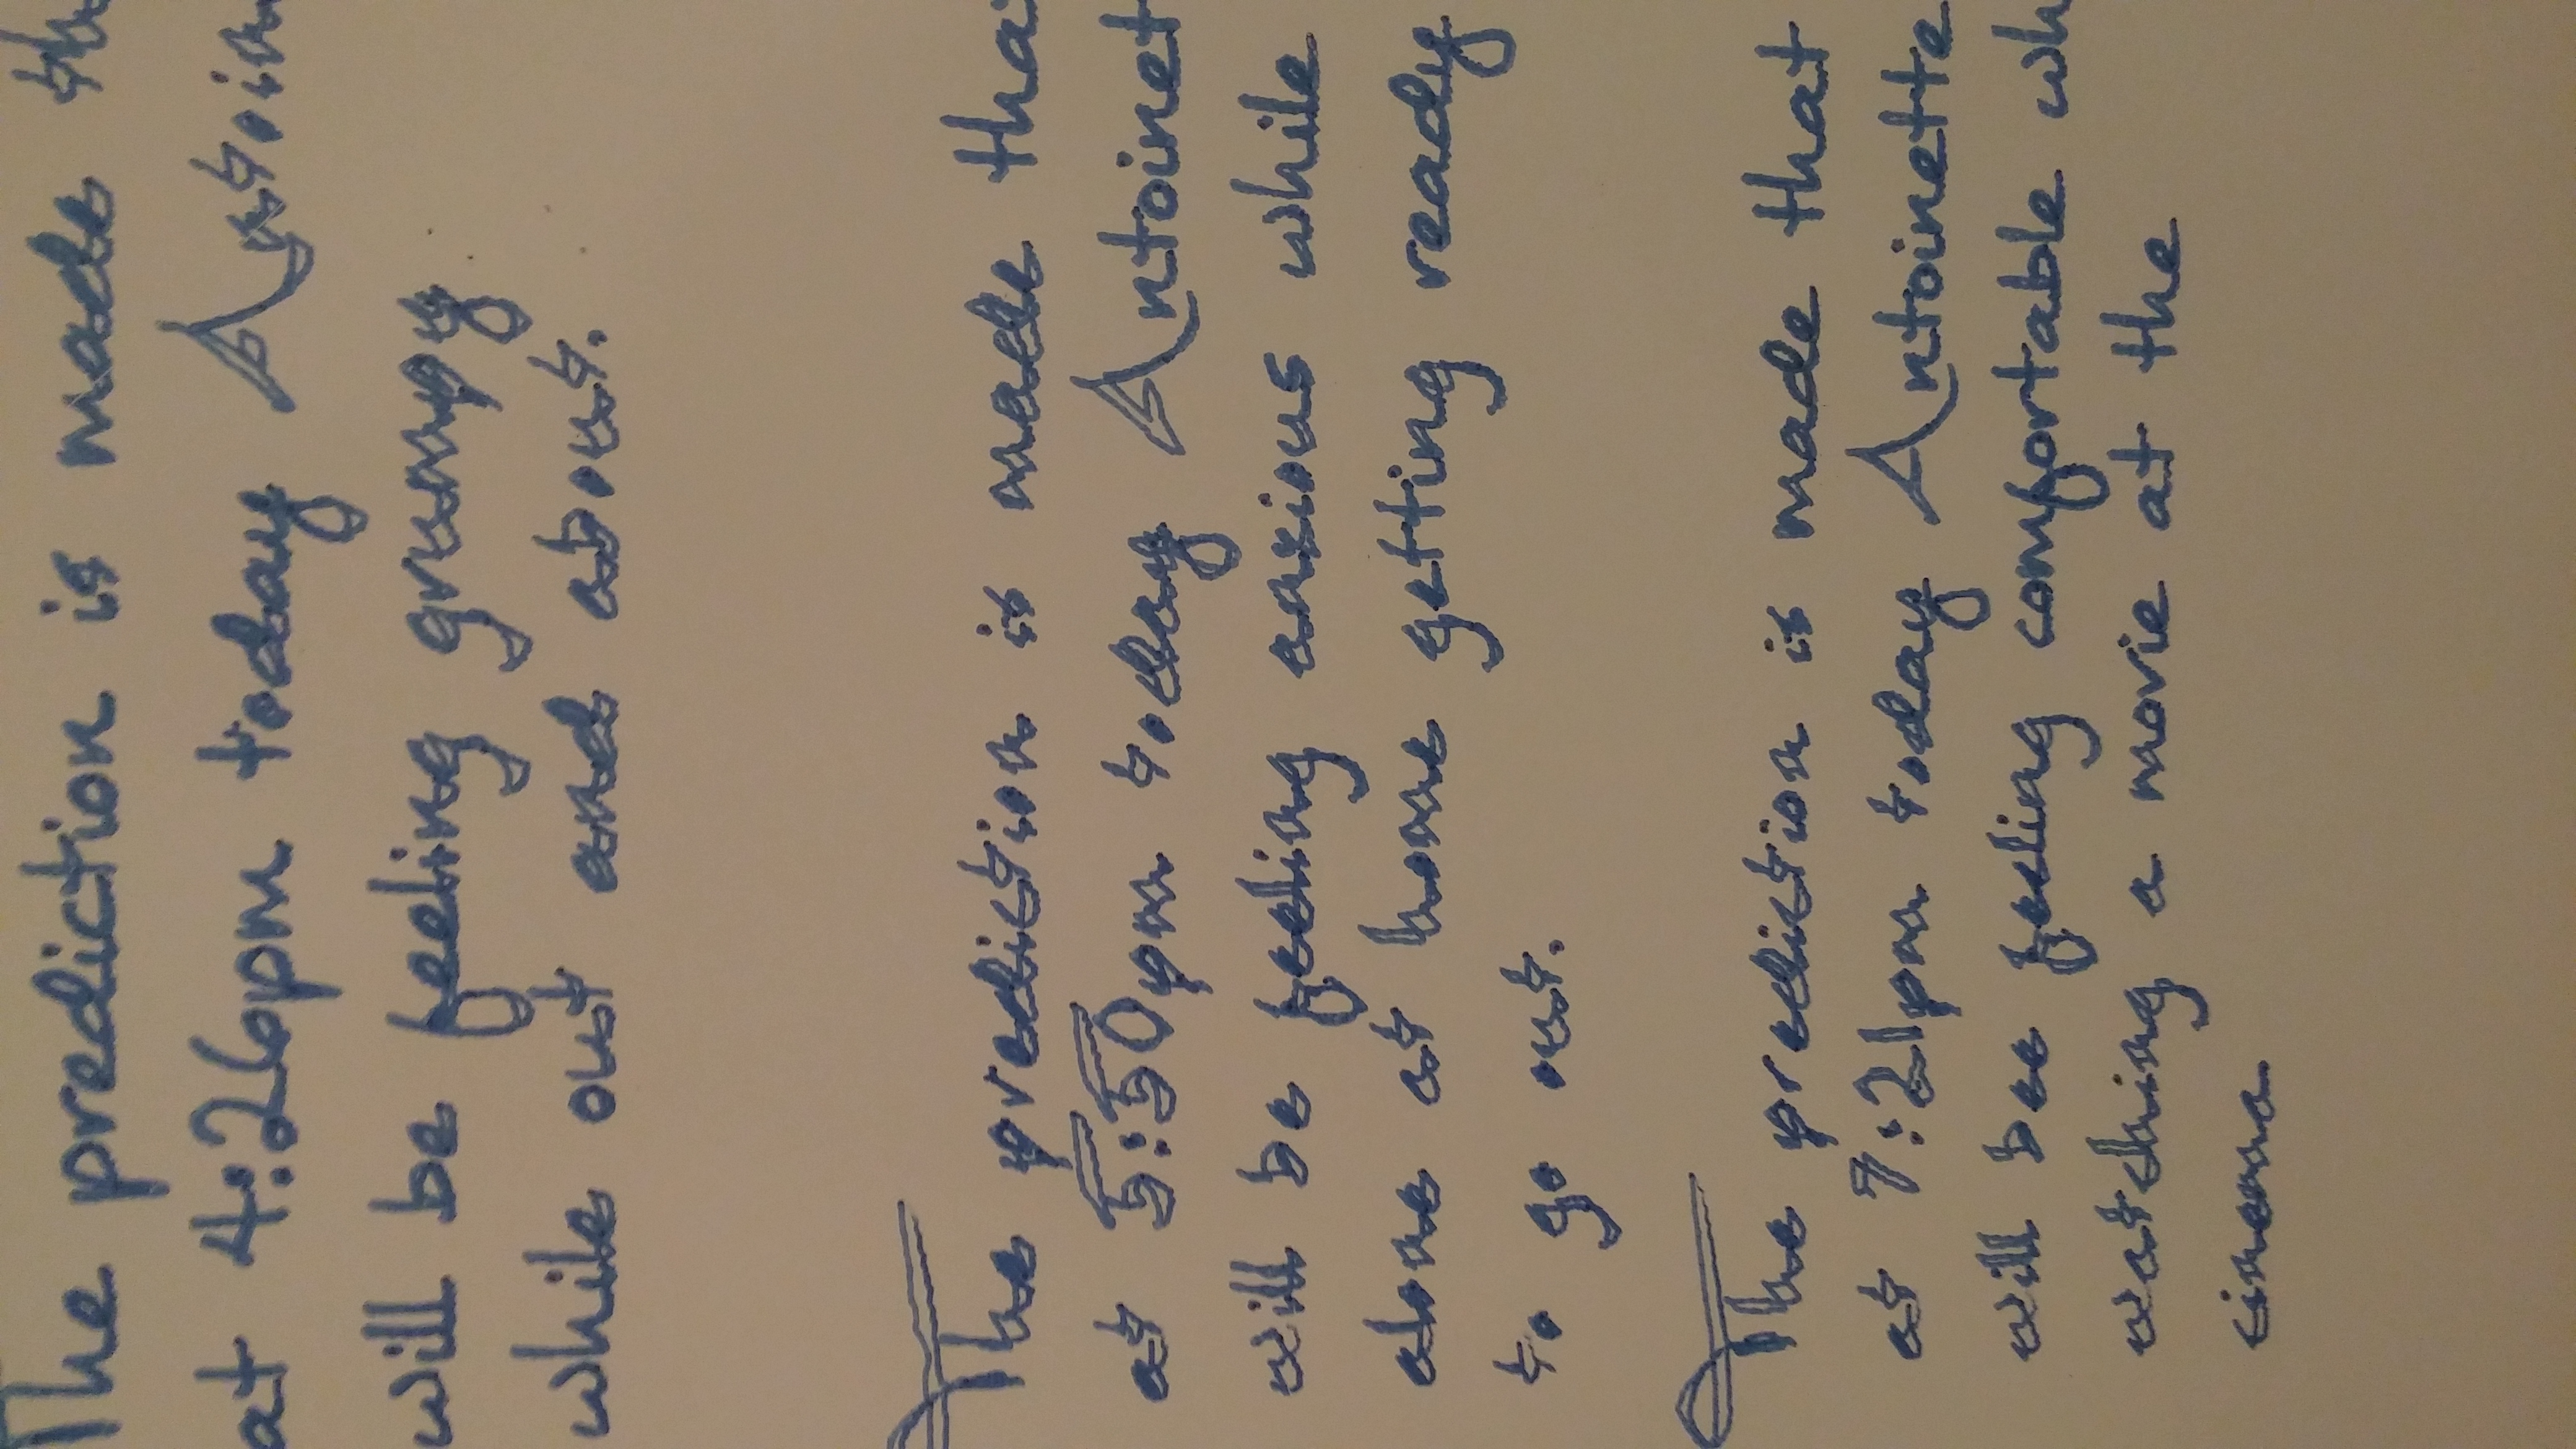 The prediction is made th
at 4:26pm today Antoin
will be feeling grumpy
while out and about.
The prediction is made tha
at 5:50pm today Antoinet
will be feeling anxious while
alone at home getting ready
to go out.
The prediction is made that
at 7:21pm today Antoinette
will be feeling comfortable wh
watching a movie at the
cinema